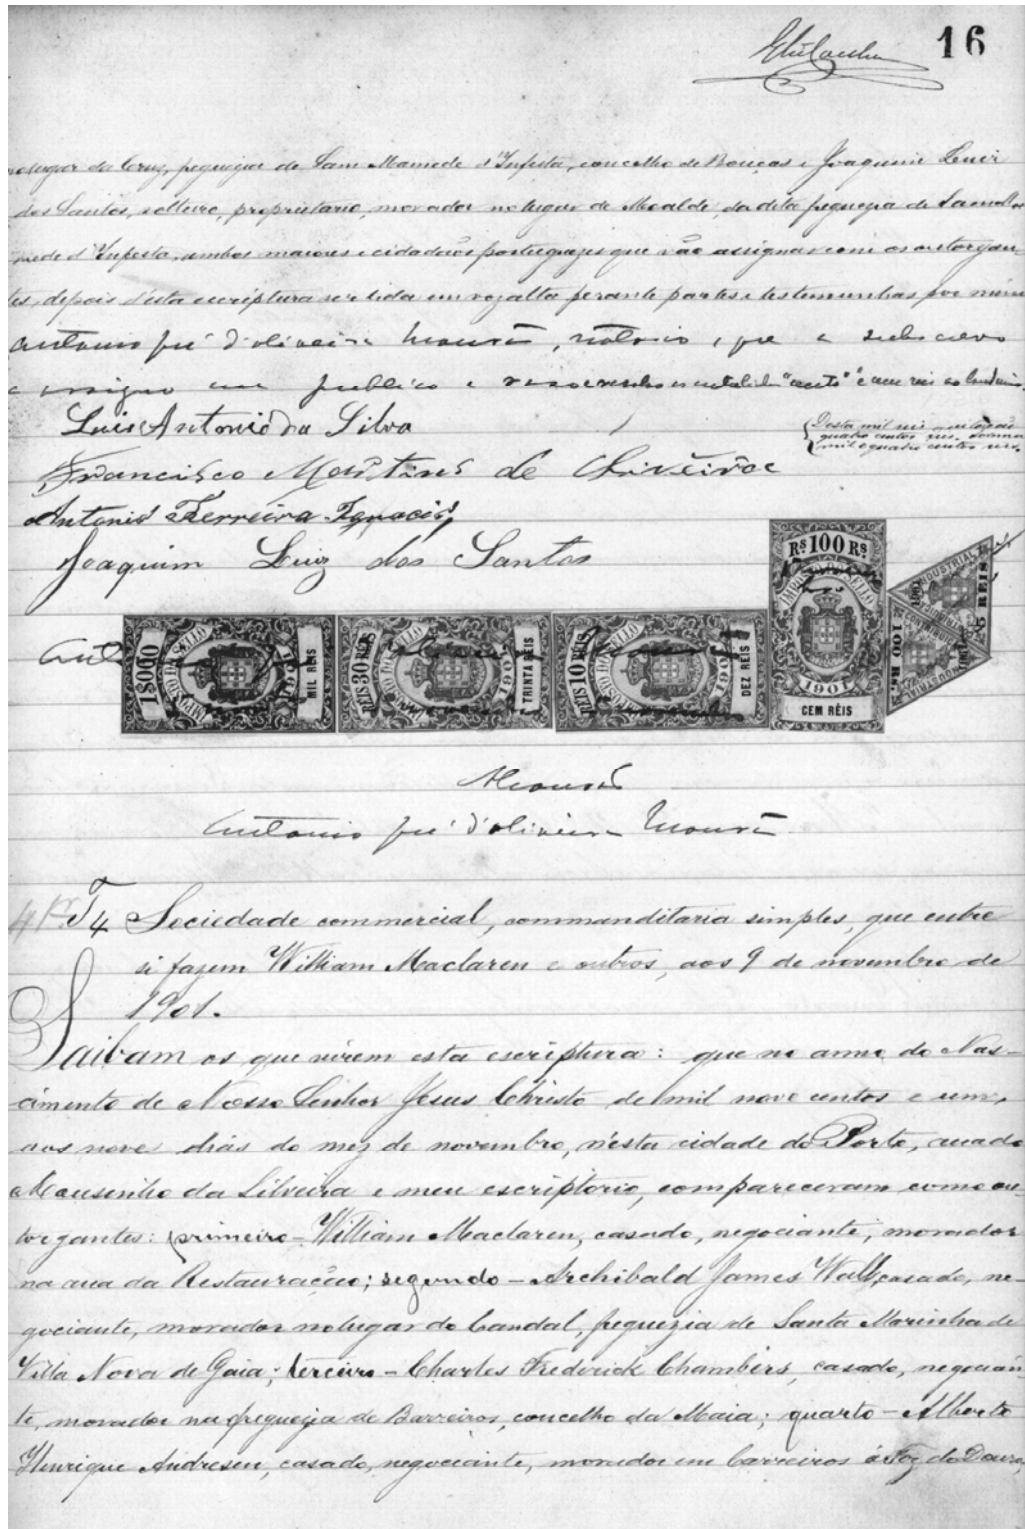 16
no lugar da Cruz, freguezia de Sam Mamede d'Infesta, concelho de Bouças e Joaquim Luiz
dos Santos, solteiro, proprietario, morador no lugar de Moalde, da dita freguezia de Sam Ma-
mede d'Infesta, ambos maiores e cidadãos portuguezes que vão assignar com os outorgan-
tes, depois d'esta escriptura ser lida em voz alta perante partes e testemunhas por mim
Antonio José d'Oliveira Mourão, notario, que a subscrevo
e assigno em publico e raso
Luis Antonio da Silva
(Desta mil reis
quatro centos reis. Somma
mil e quatro centos reis.
Francisco Martins de Oliveira
Antonio Ferreira Ignacio,
Joaquim Luiz dos Santos
Rs 100 Rs
IMPOSTO DO SELLO
1901
CEM RÉIS
1$000
IMPOSTO DO SELLO
1901
MIL REIS
REIS 30 REIS
IMPOSTO DO SELLO
1901
TRINTA REIS
REIS 10 REIS
IMPOSTO DO SELLO
1901
DEZ RÉIS
CONTRIBUIÇÃO INDUSTRIAL
1901
5 REIS
CONTRIBUIÇÃO INDUSTRIAL
100 RS.
Mourão
Antonio José d'Oliveira Mourão
Sociedade commercial, commanditaria simples, que entre
si fazem William Maclaren e outros, aos 9 de novembro de
1901.
Saibam os que virem esta escriptura: que no anno do Nas-
cimento de Nosso Senhor Jesus Christo de mil nove centos e um,
aos nove dias do mez de novembro, n'esta cidade do Porto, rua do
Mousinho da Silveira e meu escriptorio, compareceram como ou-
torgantes: primeiro - William Maclaren, casado, negociante, morador
na rua da Restauração; segundo - Archibald James Wall, casado, ne-
gociante, morador no lugar do Candal, freguezia de Santa Marinha de
Villa Nova de Gaia; terceiro - Charles Frederick Chambers, casado, negocian-
te, morador na freguezia de Barreiros, concelho da Maia; quarto - Alberto
Henrique Andresen, casado, negociante, morador em Carreiros á Foz do Douro,